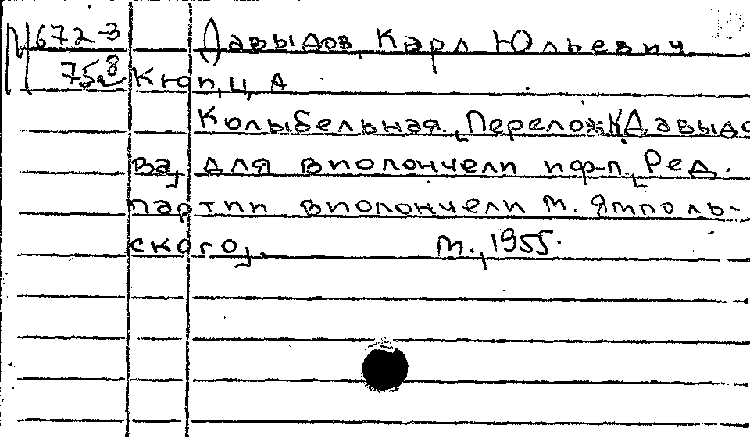 М 672-3 Давыдов, Карл Юльевич
75 8 Кюи, Ц. А
Колыбельная, [Перелож. К. Давыдо
ва] для виолончели и ф-п, [Ред.
партии виолончели М. Ямполь-
ского], М., 1955.